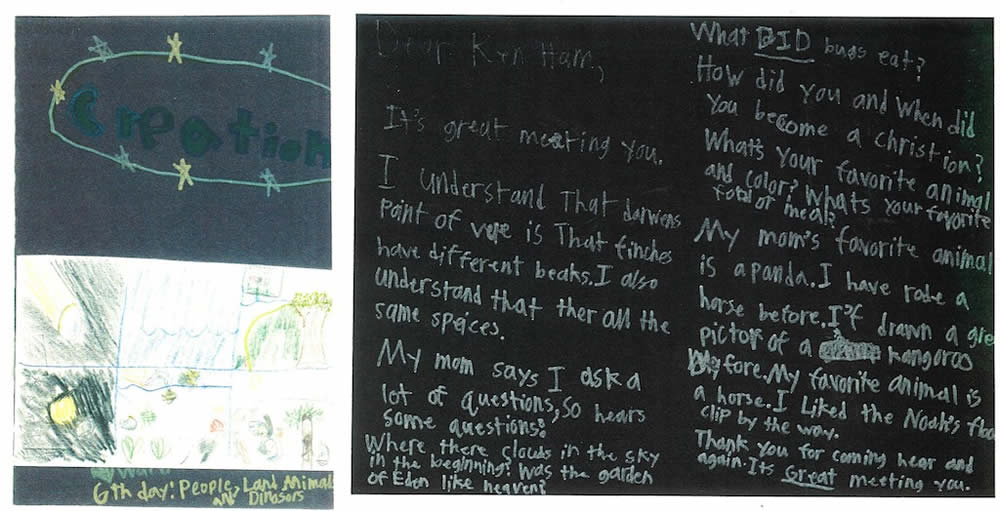 Creation
6th day: People, Land Animal
and Dinosors
Dear Ken Ham,
It's great meeting you.
I understand That darwens
point of vere is That finches
have different beaks. I also
understand that ther all the
same speices.
My mom says I ask a
lot of questions, so hears
some questions:
Where there clouds in the sky
in the beginning? Was the garden
of Eden like heaven?
What DID bugs eat?
How did you and when did
You become a christion?
Whats your favorite animal
and color? Whats your favorite
food or meal?
My mom's favorite animal
is a panda. I have rode a
horse before. I'f drawn a gre
pictor of a kangaroo
before. My favorite animal is
a horse. I Liked the Noah's floo
clip by the way.
Thank you for coming hear and
again. Its Great meeting you.